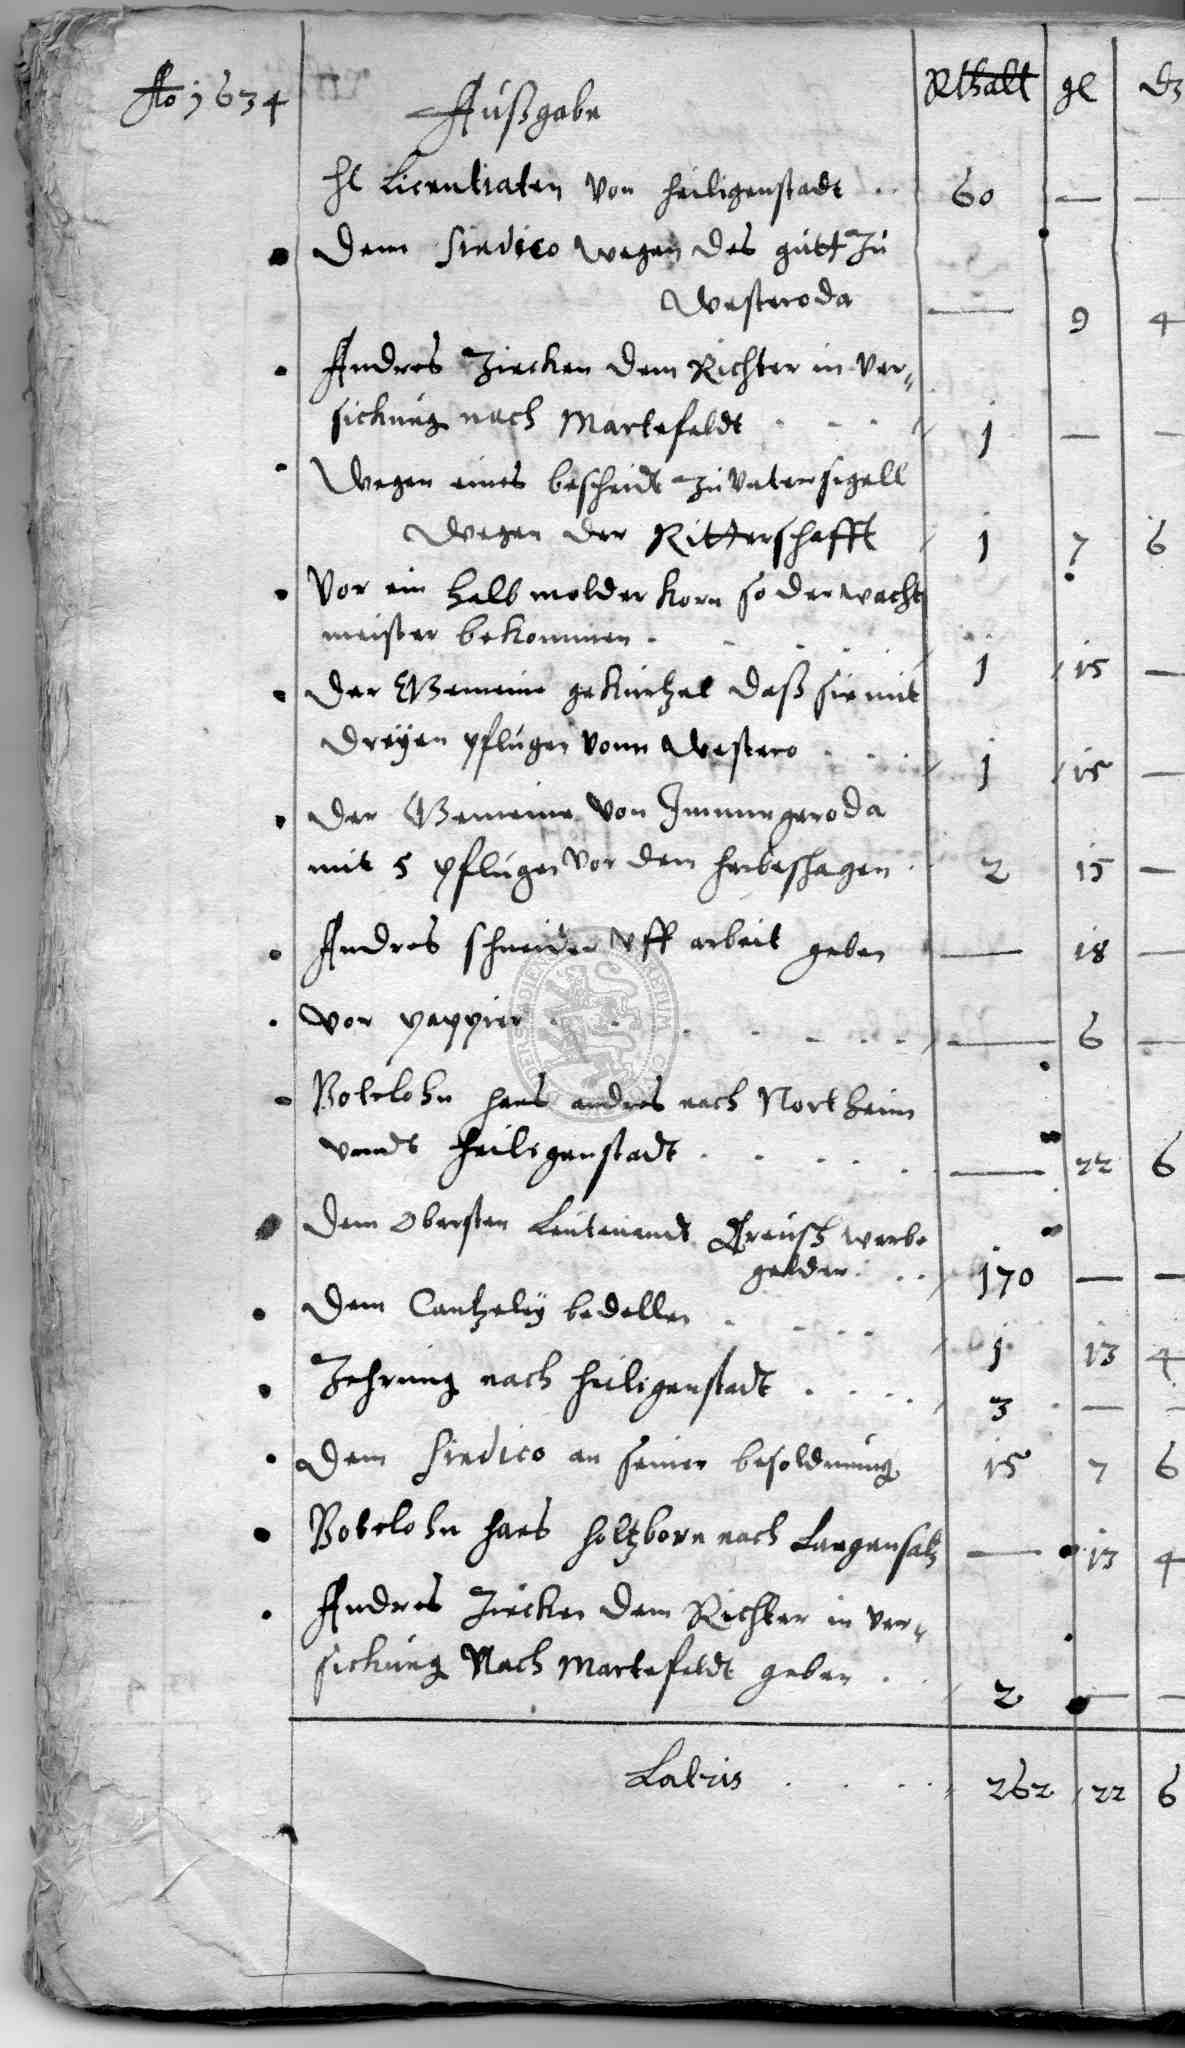 Ao 1634 Außgabe Rthall gl d3
Hl Licentiaten von Heiligenstadt .. 60 — —
Dem Sindico wegen des gutt zu
Westeroda — 9 4
Andres Ziecken dem Richter in ver„
sickung nach Martefeldt . . . 1 — —
Wegen eines bescheidt zu
Wegen der Ritterschafft 1 7 6
Vor ein halb molder Korn so der wacht
meister bekommen . . . . 1 15 —
Der Gemeine daß sie mit
dreyen pflugen vonn Westero . . . 1 15 —
Der Gemeine von Immingeroda
mit 5 pflugen vor dem Herbeshagen . 2 15 —
Andres schneider Uff arbeit geben — 18 —
Vor pappier . . . . . . — 6 —
Botelohn Hans andres nach Northeim
unndt Heiligenstadt . . . . . — 22 6
Dem Obersten Leutenandt werbe
gelder . . . 170 — —
Dem Cantzeley bedellen . . . . 1 13 4
Zehrung nach Heiligenstadt . . . . 3 — —
Dem Sindico an seiner besoldunng 15 7 6
Botelohn Hans Holtzborn nach Langensaltz — 13 4
Andres Ziecken dem Richter in ver„
sickung Nach Martefeldt geben . . 2 — —
Latris . . . . 262 22 6